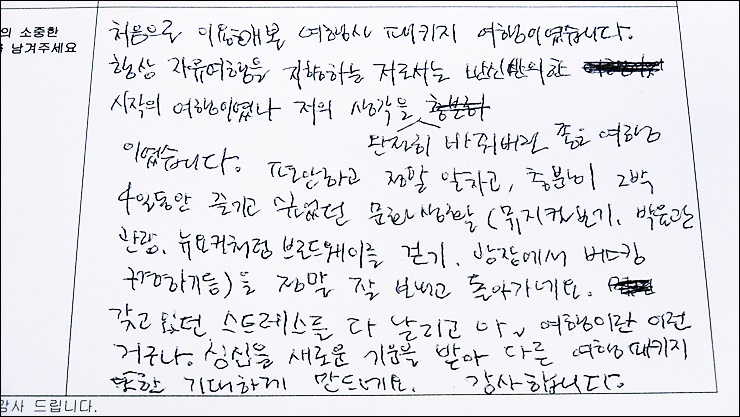 의 소중한
남겨주세요
처음으로 이용해본 여행사 패키지 여행이었습니다.
항상 자유여행을 지향하는 저로서는 반신반의한
시작의 여행이었으나 저의 생각을
단단히 바꿔버린 좋은 여행
이었습니다. 편안하고 정말 알차고, 충분히 2박
4일동안 즐기고 싶었던 문화생활 (뮤지컬보기, 박물관
관람, 뉴요커처럼 브로드웨이를 걷기, 광장에서 버스킹
구경하기등)을 정말 잘 보내고 돌아가네요.
갖고 있던 스트레스를 다 날리고 아~ 여행이란 이런
거구나. 심신을 새로운 기운을 받아 다른 여행 패키지
또한 기대하게 만드네요. 감사합니다.
감사 드립니다.